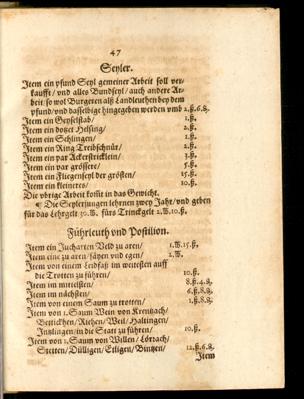 47
Seyler.
Item ein pfund Seyl gemeiner Arbeit soll ver-
kaufft / und alles Bundseyl / auch andere Ar-
beit / so wol Burgeren alß Landleuthen bey dem
pfund / und dasselbige hingegeben werden vmb 2.ß.6.₰.
Item ein Geyselstab / 1.ß.
Item ein dotzet Helsing / 2.ß.
Item ein Schlingen / 1.ß.
Item ein Ring Treibschnür / 2.ß.
Item ein par Ackerstricklein / 3.ß.
Item ein par grössere / 5.ß.
Item ein Fliegenseyl der grösten / 15.ß.
Item ein kleineres / 10.ß.
Die vbrige Arbeit kom̃t in das Gewicht.
¶ Die Seylerjungen lehrnen zwey Jahr / vnd geben
für das Lehrgelt 30.℔. fürs Trinckgelt 2.℔.10.ß.
Führleuth vnd Postilion.
Item ein Jucharten Veld zu aren / 1.℔.15.ß.
Item eine zu aren / säyen vnd egen / 2.℔.
Item von einem Leidfaß im weitesten auff
die Trotten zu führen / 10.ß.
Item im mittelsten / 8.ß.4.₰.
Item im nächsten / 6.ß.8.₰.
Item von einem Saum zu trotten / 1.ß.8.₰.
Item von 1. Saum Wein von Krentzach /
Bettickhen / Riehen / Weil / Haltingen /
Intzlingen / in die Statt zu führen / 10.ß.
Item von 1. Saum von Willen / Lörrach /
Stetten / Dülligen / Etligen / Bintzen / 12.ß.6.₰.
Item